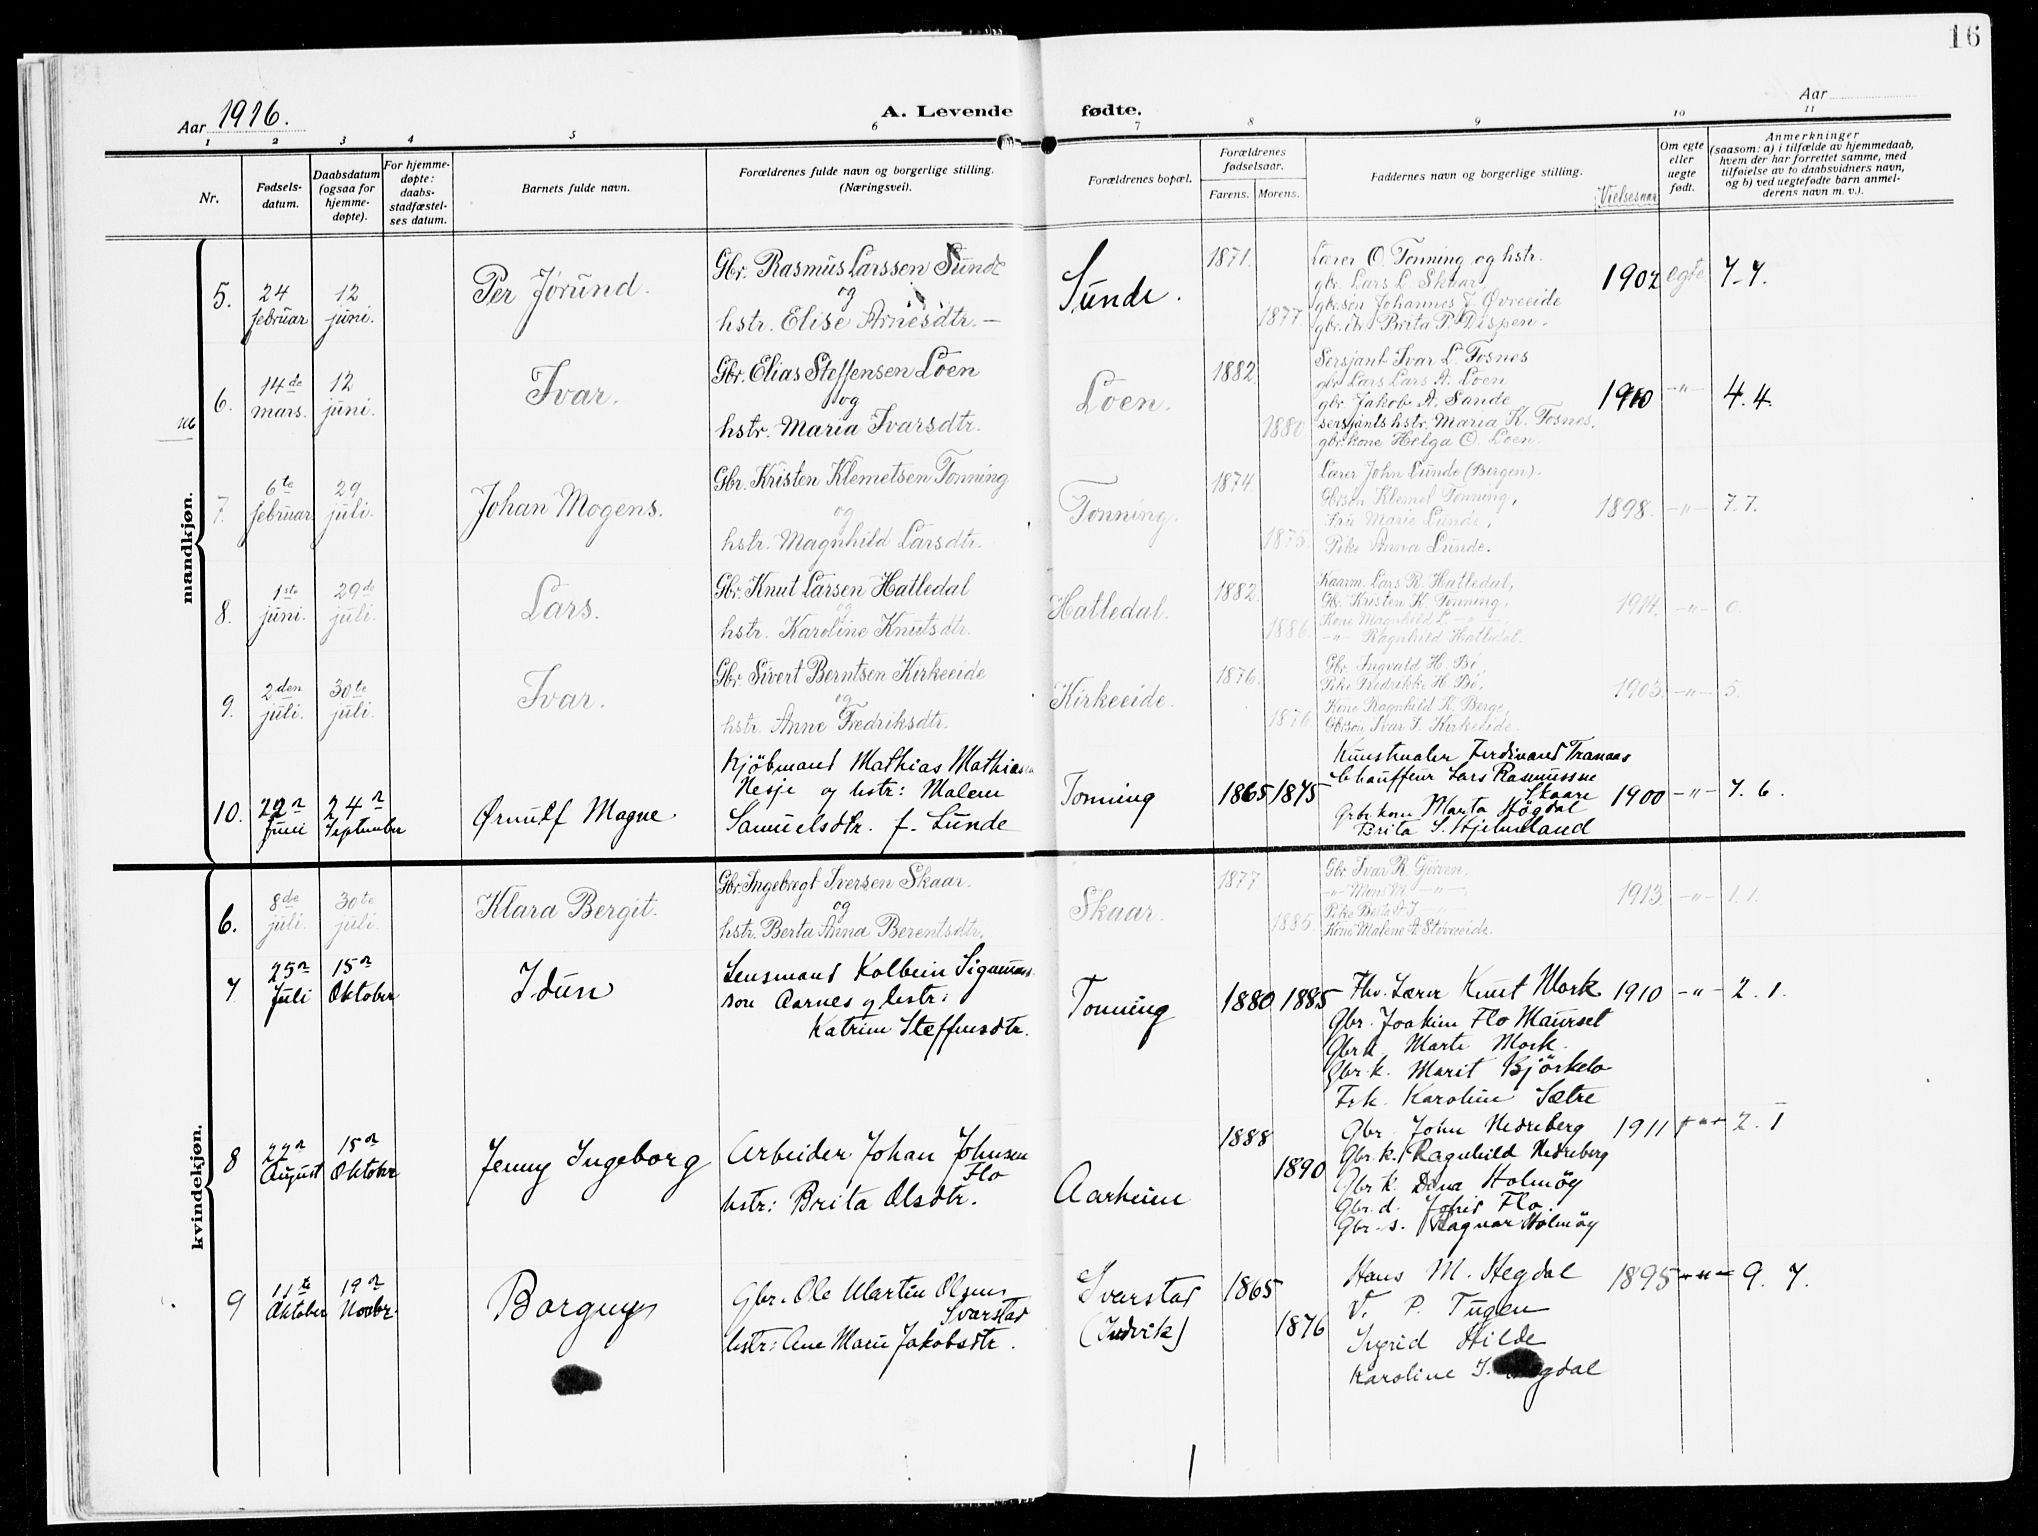 16
Aar 1916.
A. Levende fødte.
Aar
1 2 3 4 5 6 7 8 9 10 11
Nr.
Fødsels-
datum.
Daabsdatum
(ogsaa for
hjemme-
døpte).
For hjemme-
døpte:
daabs-
stadfæstel-
ses datum.
Barnets fulde navn.
Forældrenes fulde navn og borgerlige stilling.
(Næringsvei).
Forældrenes bopæl.
Forældrenes
fødselsaar.
Farens. Morens.
Faddernes navn og borgerlige stilling.
Vielsesaar
Om egte
eller
uegte
født.
Anmerkninger
(saasom: a) i tilfælde av hjemmedaab,
hvem der har forrettet samme, med
tilføielse av to daabsvidners navn,
og b) ved uegtefødte barn anmel-
derens navn m. v.).
mandkjøn.
5.
24
februar
12
juni.
Per Jørund.
Gbr. Rasmus Larssen Sunde
og
hstr. Elise Arnesdtr. —
Sunde.
1871.
1877
Lærer O. Tonning og hstr.
gbr. Lars L. Skaar,
gbr.søn Johannes J. Øvreeide
gbr.dtr Brita P. Dispen.
1902
egte
7-7.
6.
14de
mars.
12
juni.
Ivar.
Gbr. Elias Steffensen Loen
og
hstr. Maria Ivarsdtr.
Loen.
1882.
1880
Sersjant Ivar L. Fosnes
gbr. Lars Lars A. Loen
gbr. Jakob A. Sande
sersjants hstr. Maria K. Fosnes,
gbr.kone Helga O. Loen.
1910
-"-
4.4.
7.
6te
februar.
29
juli.
Johan Mogens.
Gbr. Kristen Klemetsen Tonning
og
hstr. Magnhild Larsdtr.
Tonning.
1874.
1875.
Lærer John Lunde (Bergen).
Gbrsøn Klemet Tonning,
Fru Marie Lunde,
Pike Anna Lunde.
1898.
-"-
7.7.
8.
1ste
juni.
29de
juli.
Lars.
Gbr. Knut Larsen Hatledal
og
hstr. Karoline Knutsdtr.
Hatledal.
1882.
1886.
Kaarm. Lars R. Hatledal,
Gbr. Kristen K. Tonning,
Kone Magnhild L. -"-
-"- Ragnhild Hatledal.
1914.
-"-
0.
9.
2den
juli.
30te
juli.
Ivar.
Gbr. Sivert Berntsen Kirkeeide
og
hstr. Anne Fredriksdtr.
Kirkeeide.
1876.
1876
Gbr. Ingvald H. Bø,
Pike Fredrikke H. Bø,
Kone Ragnhild K. Berge,
Gbrsøn Ivar S. Kirkeeide.
1903.
-"-
5.
10.
22n
Juni
24n
September
Ørnulf Magne
Kjøbmand Mathias Mathiassen
Nesje og hstr: Malene
Samuelsdtr. f. Lunde
Tonning
1865 1875
Kunstmaler Ferdinand Tranaas
Chauffeur Lars Rasmussne
Skaare
Gbr.kone Marta Høgdal
Brita S. Hjelmeland
1900
-"-
7. 6.
kvindekjøn.
6.
8de
juli.
30te
juli.
Klara Bergit.
Gbr. Ingebregt Iversen Skaar.
og
hstr. Berta Anna Berentsdtr.
Skaar.
1877
1885.
Gbr. Ivar R. Gjørven.
-"- Mons -"-
Pike Berta A. J. -"-
Kone Malene A. Støvreeide.
1913.
-"-
1.1.
7
25n
Juli
15n
Oktober
Idun
Lensmand Kolbein Sigmunds-
son Aarnes og hstr:
Katrine Steffensdtr.
Tonning
1880 1885
Fhv. Lærer Knut Mork
Gbr. Joakim Flo Maurset
Gbr.k. Marte Mork.
Gbr.k. Marit Bjørkelo
Frk. Karoline Sætre
1910
-"-
2. 1.
8
22n
August
15n
Oktober
Jenny Ingeborg
Arbeider Johan Johnsen
Flo
hstr: Brita Olsdtr.
Aarheim
1888
1890
Gbr. John Nedreberg
Gbr.k. Ragnhild Nedreberg
Gbr.k. Dina Holmøy
Gbr.d. Jofrid Flo.
Gbr.s. Ragnar Holmøy
1911
-"-
2. 1
9
11te
Oktober
19n
Novbr.
Borgny
Gbr. Ole Martin Olsen
Svarstad
hstr: Ane Marie Jakobsdtr.
Svarstad
(Indvik)
1865
1876
Hans M. Hegdal
V. P. Tugen
Ingrid Hilde
Karoline
1895
-"-
9. 7.